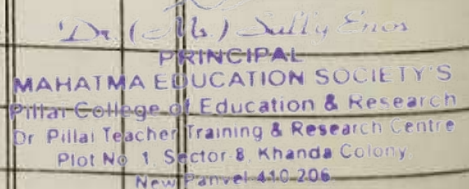 Dr (Ms.) Sally Enos
PRINCIPAL
MAHATMA EDUCATION SOCIETY'S
Pillai College of Education & Research
Dr Pillai Teacher Training & Research Centre
Plot No 1, Sector-8, Khanda Colony
New Panvel 410 206